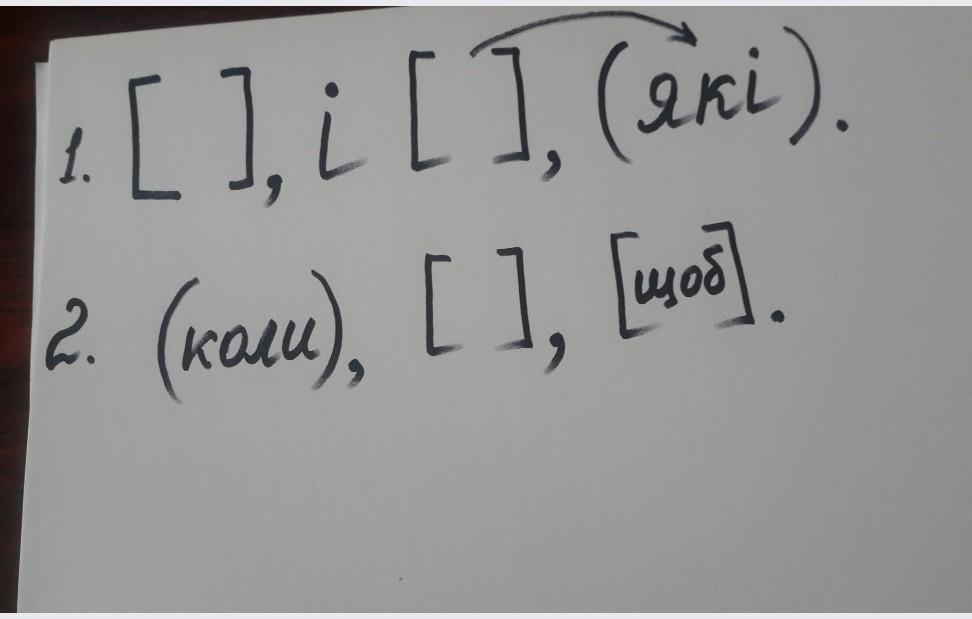 1. [ ], і [ ], (які).
2. (коли), [ ], [щоб].